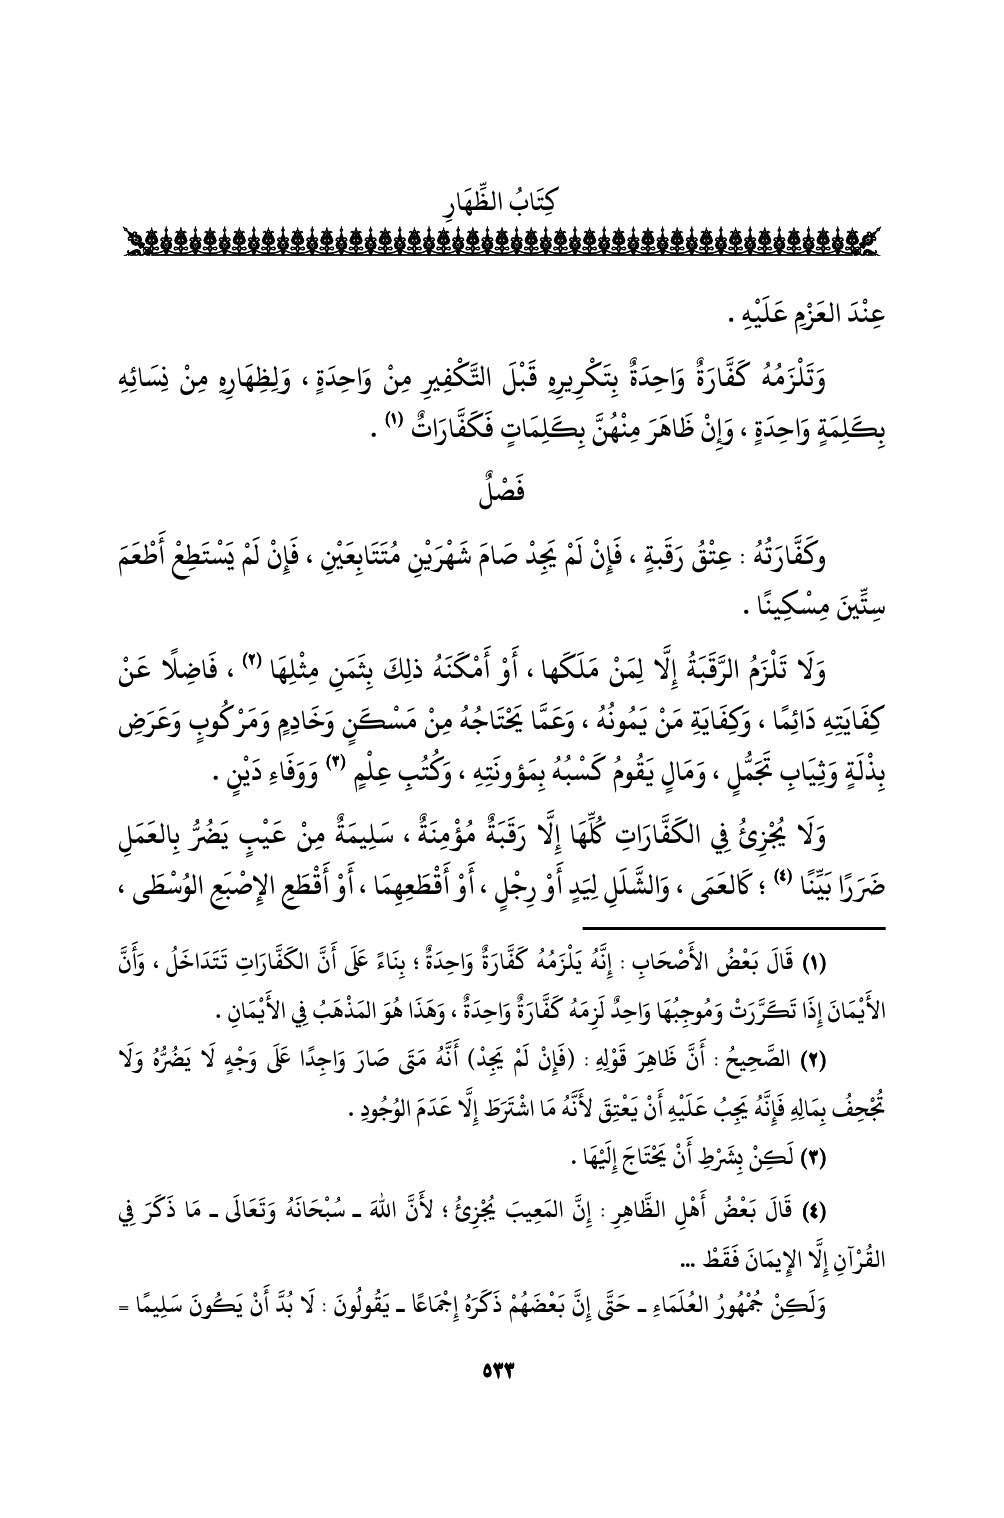 كِتَابُ الظِّهَارِ
عِنْدَ العَزْمِ عَلَيْهِ .
وَتَلْزَمُهُ كَفَّارَةٌ وَاحِدَةٌ بِتَكْرِيرِهِ قَبْلَ التَّكْفِيرِ مِنْ وَاحِدَةٍ ، وَلِظِهَارِهِ مِنْ نِسَائِهِ
بِكَلِمَةٍ وَاحِدَةٍ ، وَإِنْ ظَاهَرَ مِنْهُنَّ بِكَلِمَاتٍ فَكَفَّارَاتٌ (١) .
فَصْلٌ
وكَفَّارَتُهُ : عِتْقُ رَقَبةٍ ، فَإِنْ لَمْ يَجِدْ صَامَ شَهْرَيْنِ مُتَتَابِعَيْنِ ، فَإِنْ لَمْ يَسْتَطِعْ أَطْعَمَ
سِتِّينَ مِسْكِينًا .
وَلَا تَلْزَمُ الرَّقَبَةُ إِلَّا لِمَنْ مَلَكَها ، أَوْ أَمْكَنَهُ ذلِكَ بِثَمَنِ مِثْلِهَا (٢) ، فَاضِلًا عَنْ
كِفَايَتِهِ دَائِمًا ، وَكِفَايَةِ مَنْ يَمُونُهُ ، وَعَمَّا يَحْتَاجُهُ مِنْ مَسْكَنٍ وَخَادِمٍ وَمَرْكُوبٍ وَعَرَضِ
بِذْلَةٍ وَثِيَابِ تَجَمُّلٍ ، وَمَالٍ يَقُومُ كَسْبُهُ بِمَؤونَتِهِ ، وَكُتُبِ عِلْمٍ (٣) وَوَفَاءِ دَيْنٍ .
وَلَا يُجْزِئُ فِي الكَفَّارَاتِ كُلِّهَا إِلَّا رَقَبَةٌ مُؤْمِنَةٌ ، سَلِيمَةٌ مِنْ عَيْبٍ يَضُرُّ بِالعَمَلِ
ضَرَرًا بَيِّنًا (٤) ؛ كَالعَمَى ، وَالشَّلَلِ لِيَدٍ أَوْ رِجْلٍ ، أَوْ أَقْطَعِهِمَا ، أَوْ أَقْطَعِ الإِصْبَعِ الوُسْطَى ،
(١) قَالَ بَعْضُ الأَصْحَابِ : إِنَّهُ يَلْزَمُهُ كَفَّارَةٌ وَاحِدَةٌ ؛ بِنَاءً عَلَى أَنَّ الكَفَّارَاتِ تَتَدَاخَلُ ، وَأَنَّ
الأَيْمَانَ إِذَا تَكَرَّرَتْ وَمُوجِبُهَا وَاحِدٌ لَزِمَهُ كَفَّارَةٌ وَاحِدَةٌ ، وَهَذَا هُوَ المَذْهَبُ فِي الأَيْمَانِ .
(٢) الصَّحِيحُ : أَنَّ ظَاهِرَ قَوْلِهِ : (فَإِنْ لَمْ يَجِدْ) أَنَّهُ مَتَى صَارَ وَاجِدًا عَلَى وَجْهٍ لَا يَضُرُّهُ وَلَا
تُجْحِفُ بِمَالِهِ فَإِنَّهُ يَجِبُ عَلَيْهِ أَنْ يَعْتِقَ لأَنَّهُ مَا اشْتَرَطَ إِلَّا عَدَمَ الوُجُودِ .
(٣) لَكِنْ بِشَرْطِ أَنْ يَحْتَاجَ إِلَيْهَا .
(٤) قَالَ بَعْضُ أَهْلِ الظَّاهِرِ : إِنَّ المَعِيبَ يُجْزِئُ ؛ لأَنَّ اللهَ ـ سُبْحَانَهُ وَتَعَالَى ـ مَا ذَكَرَ فِي
القُرْآنِ إِلَّا الإِيمَانَ فَقَطْ ...
وَلَكِنْ جُمْهُورُ العُلَمَاءِ ـ حَتَّى إِنَّ بَعْضَهُمْ ذَكَرَهُ إِجْمَاعًا ـ يَقُولُونَ : لَا بُدَّ أَنْ يَكُونَ سَلِيمًا =
٥٣٣